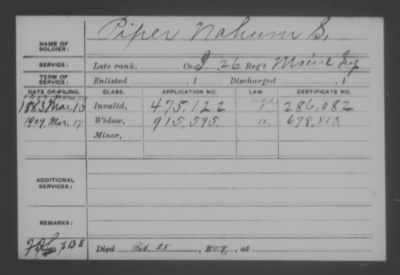 NAME OF SOLDIER: Piper Nahum S.
SERVICE: Late rank, Co. I 26 Reg't Maine Inf
TERM OF SERVICE: Enlisted , 1 Discharged , 1
DATE OF FILING. CLASS. APPLICATION NO. LAW. CERTIFICATE NO.
1883 Mar. 13 Invalid, 475,122 286,082
1909, Mar. 17 Widow, 915,595 678,813
Minor,
ADDITIONAL SERVICES:
REMARKS:
Died Feb. 28, 1909, at